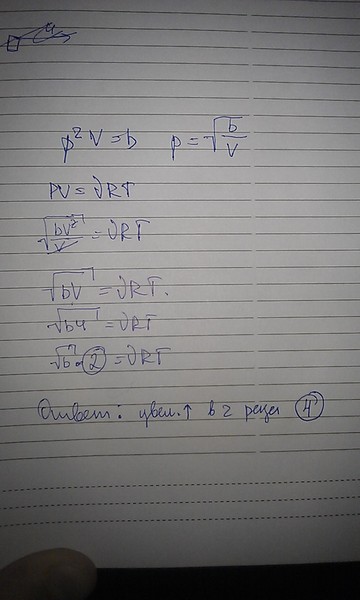 p²V = b p = √(b/V)
PV = νRT
√(bV²/V) = νRT
√(bV) = νRT.
√(b4) = νRT
√b · 2 = νRT
Ответ: увел. ↑ в 2 раза 4